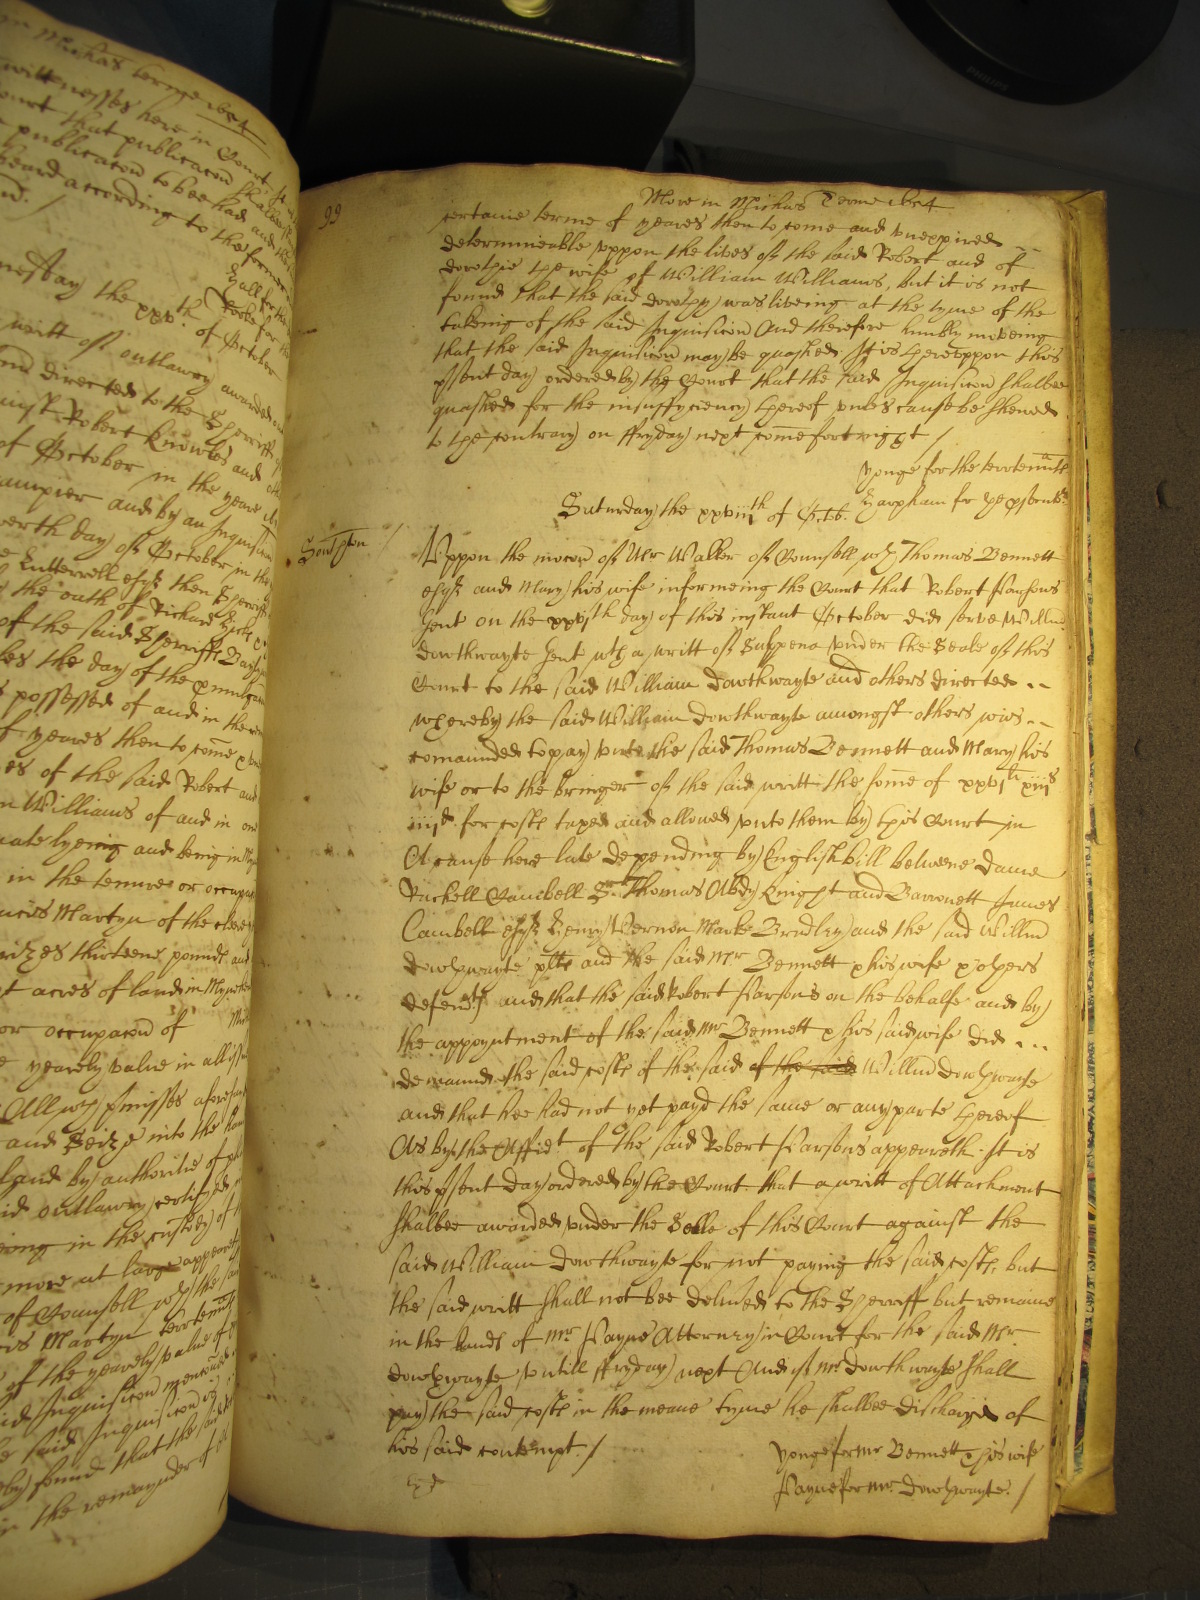 in Michas terme 1654
wittnesses here in Court
Court that publicacon shalbe
publicacon to bee had and
heard according to the former
Hall for the
Rooke for the
the xxvth of October
writt of outlawry awarded
directed to the Sherriffe
Robert Knowles and
of October in the yeare
and by an Inquisicon
day of October in the
Lutterell esqr then Sherriffe
the oath of Richard
of the said Sherriffs
the day of the
possessed of and in the
of yeares then to come
of the said Robert and
Williams of and in one
lyeing and being in
in the tenure or occupacon
Martyn of the cleere
thirteene pounds and
acres of land in
or occupacon of
yearely value in all
All wch premisses aforesaid
and Seize into the hands
land by authoritie of
outlawry certifyed
being in the custody of
more at large appeareth
of Counsell wth the said
Martyn terretennt
of the yearely value of
Inquisicon menconed
said Inquisicon
found that the said
in the remaynder of
99
More in Michas Terme 1654
certaine terme of yeares then to come and vnexpired
determineable vppon the lives of the said Robert and of
Dorothie the wife of William Williams, but it is not
found that the said Dorothy was liveing at the tyme of the
takeing of the said Inquisicon And therefore humbly moveing
that the said Inquisicon may be quashed It is therevppon this
psent day ordered by the Court that the said Inquisicon shalbee
quashed for the insuffyciency thereof vnles cause be shewed
to the contrary on ffryday next come fortnight /
Yonge for the terretennt
Harpham for
Saturday the xxviiith of Octob.
Southton
Vppon the mocon of Mr Waller of Counsell wth Thomas Bennett
esqr and Mary his wife informeing the Court that Robert Parsons
gent on the xxvith day of this instant October did serve Willm
Dowthwayte gent wth a writt of Subpena vnder the Seale of this
Court to the said William Dowthwayte and others directed
whereby the said William Dowthwayte amongst others was
comaunded to pay vnto the said Thomas Bennett and Mary his
wife or to the bringer of the said writt the some of xxvili xiiis
iiijd for costs taxed and allowed vnto them by this Court in
A cause here late depending by English bill betweene Dame
Rachell Cambell Sr Thomas Abdy Knight and Barronett James
Cambell esqr Henry Vernon Marke Bradley and the said Willm
Dowthwayte plts and the said Mr Bennett & his wife & others
defendts and that the said Robert Parsons on the behalfe and by
the appoyntment of the said Mr Bennett & his said wife did
demaund the said costs of the said of the said Willm Dowthwayte
and that hee had not yet payd the same or any parte thereof
As by the Affidt of the said Robert Parsons appeareth. It is
this psent day ordered by the Court that a writt of Attachment
shalbee awarded vnder the Seale of this Court against the
said William Dowthwayte for not paying the said costs, but
the said writt shall not bee delived to the Sherriff but remaine
in the hands of Mr Payne Attorney in Court for the said Mr
Dowthwayte vntill ffryday next And if Mr Dowthwayte shall
pay the said costs in the meane tyme he shalbee discharged of
his said contempt. /
Yonge for Mr Bennett & his wife
Payne for Mr Dowthwayte. /